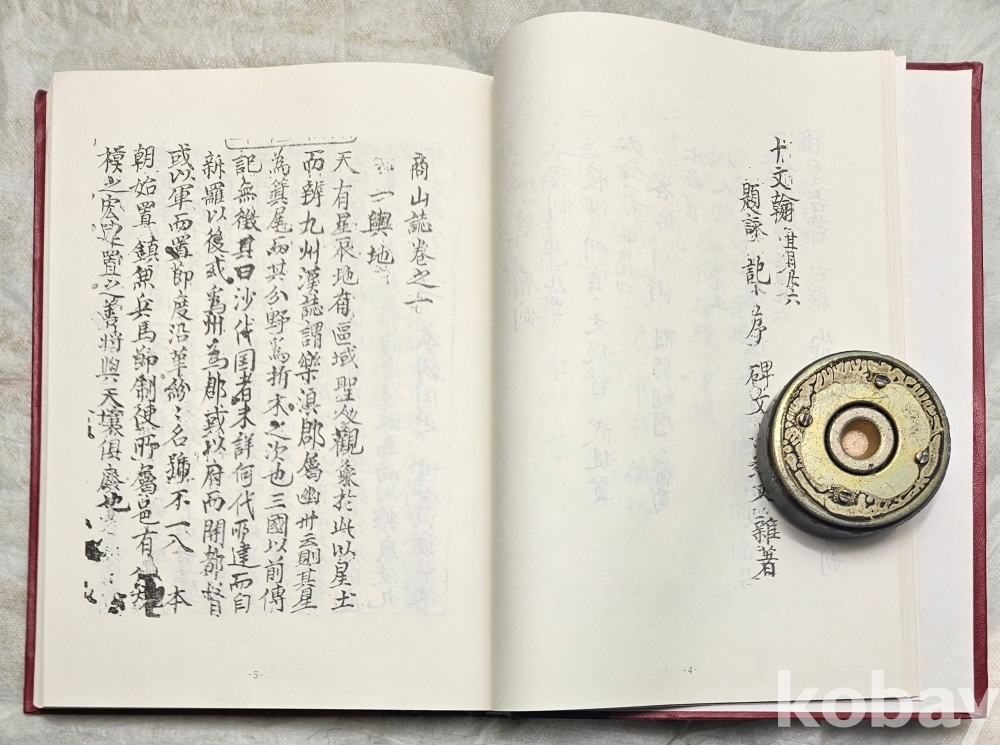 十文翰
題詠 記 序 碑文 文 雜著
-4-
商山誌卷之
一輿地
天有星辰地有區域聖 觀象於此以星土
而辨九州漢誌謂樂浪郡屬幽州 則其星
為箕尾而其分野為析木之次也三國以前傳
記無徵其曰沙伐国者未詳何代所建而自
新羅以後或為州為郡或以府而開都督
或以軍而置節度沿革紛〻名號不一入 本
朝始置鎮兼兵馬節制使所屬邑有
模之宏 置之善將與天壤俱廢也
-5-
kobay